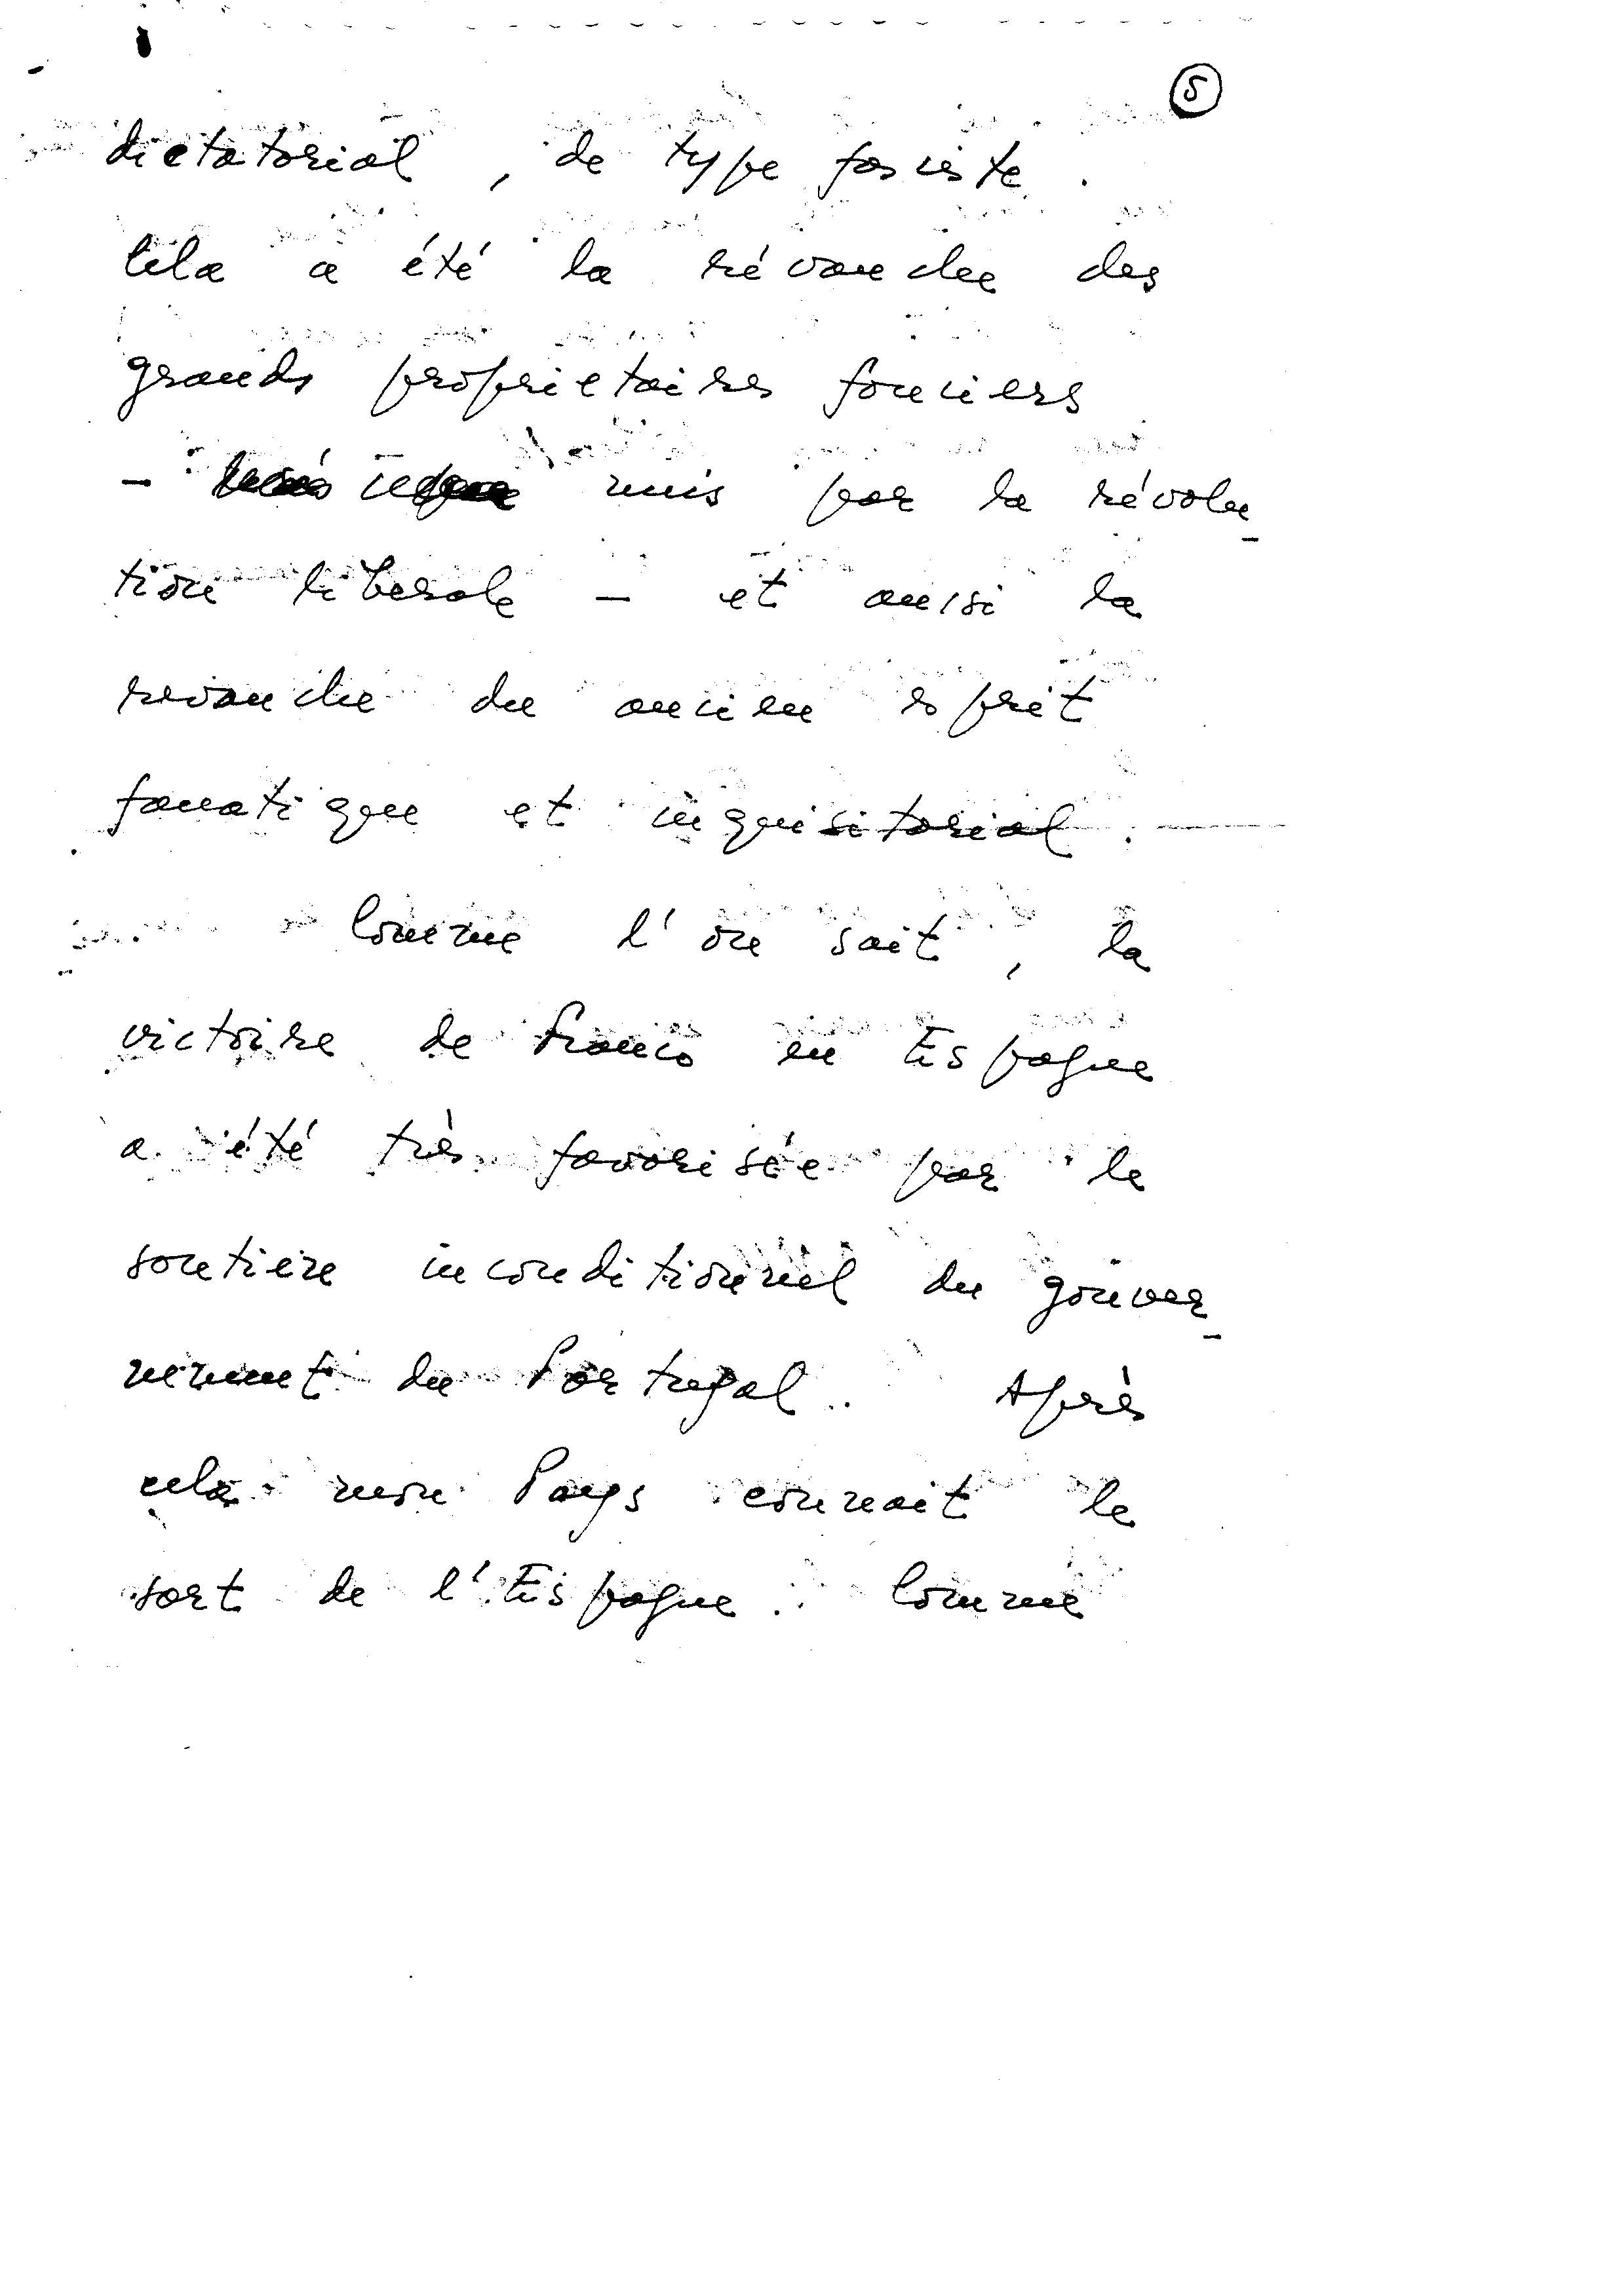 5
dictatorial, de type fasciste.
Cela a été la révanche des
grands proprietaires fonciers
- mis par la révolu_
tion liberale - et aussi la
revanche du ancien esprit
fanatique et inquisitorial.
Comme l'on sait, la
victoire de Franco en Espagne
a été très favorisée par le
soutien inconditionnel du gouver_
nement du Portugal. Après
cela mon Pays connait le
sort de l'Espagne. Comme